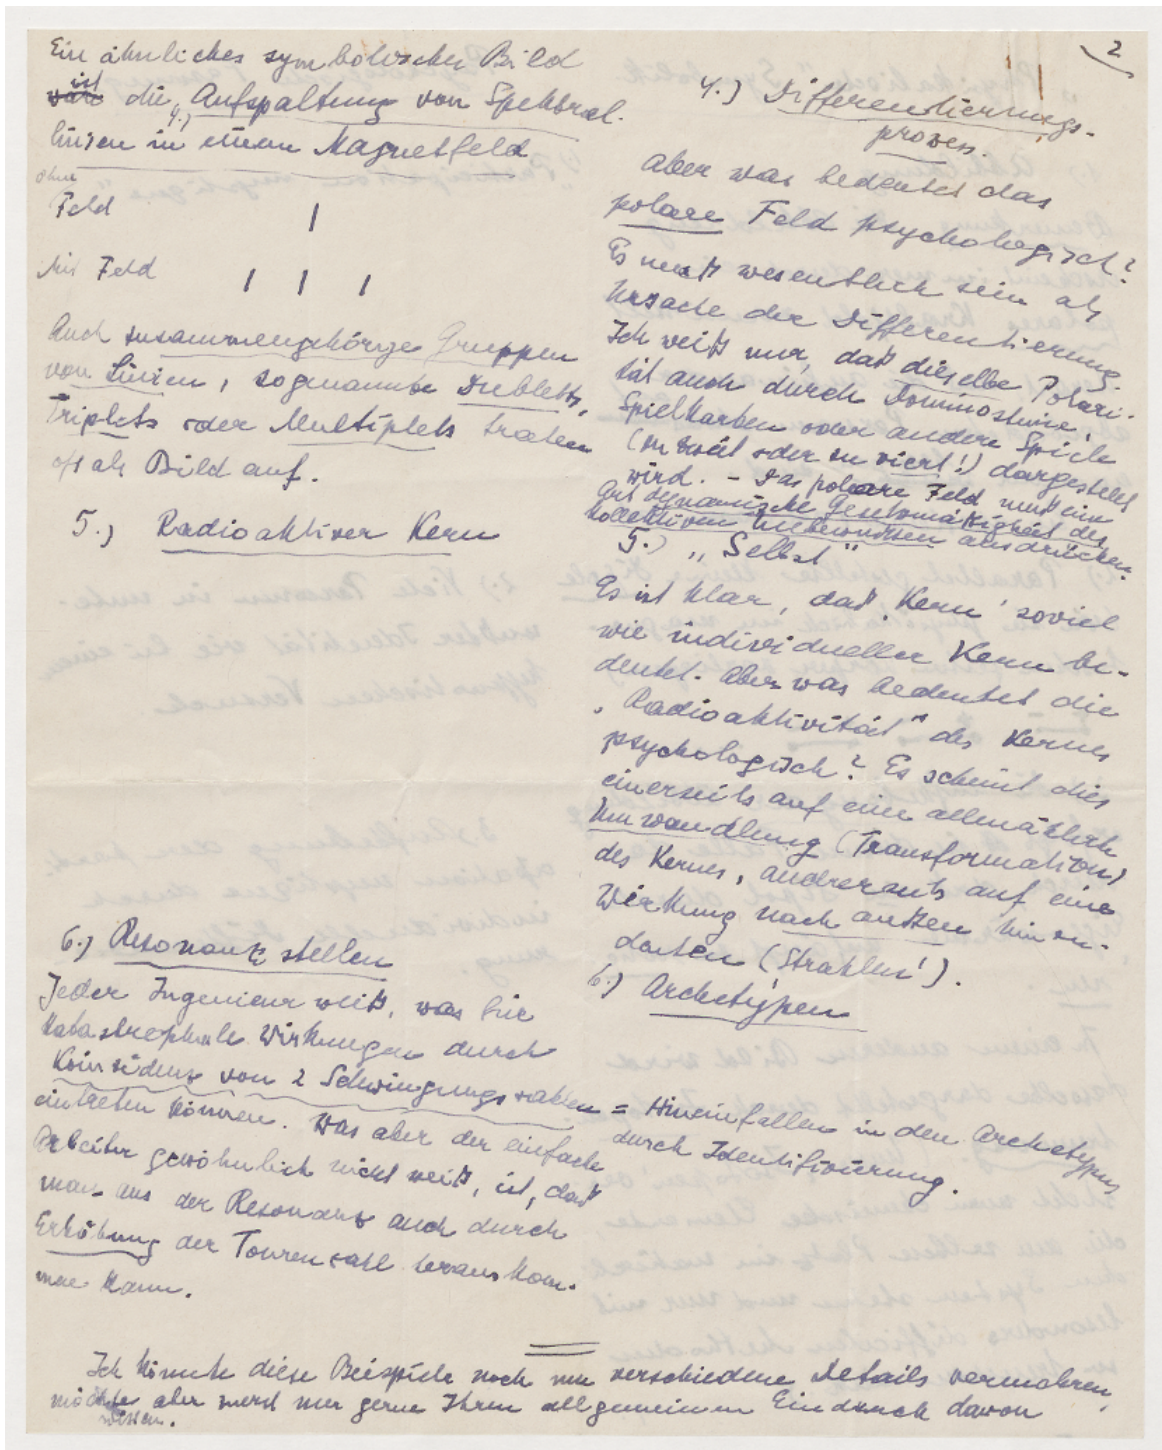 Ein ähnliches symbolisches Bild
ist
wäre die „Aufspaltung von Spektral-
4.)
linien in einem Magnetfeld
ohne
Feld
Mit Feld
Auch zusammengehörige Gruppen
von Linien, sogenannte Dubletts,
Triplets oder Multiplets traten
oft als Bild auf.
5.) Radioaktiver Kern
6.) Resonanzstellen
Jeder Ingenieur weiß, was für
katastrophale Wirkungen durch
Koinzidenz von 2 Schwingungszahlen
eintreten können. Was aber der einfache
Arbeiter gewöhnlich nicht weiß, ist, daß
man aus der Resonanz auch durch
Erhöhung der Tourenzahl herauskom-
men kann.
2
4.) Differentierungs-
prozess.
Aber was bedeutet das
polare Feld psychologisch?
Es muß wesentlich sein als
Ursache der Differentierung.
Ich weiß nur, daß dieselbe Polari-
tät auch durch Dominosteine,
Spielkarten oder andere Spiele
(zu zweit oder zu viert!) dargestellt
wird. – Das polare Feld muß eine
Art dynamische Gesetzmäßigkeit des
kollektiven Unbewußten ausdrücken.
5.) „Selbst"
Es ist klar, daß „Kern' soviel
wie individueller Kern be-
deutet. Aber was bedeutet die
„Radioaktivität" des Kernes
psychologisch? Es scheint dies
einerseits auf eine allmähliche
Umwandlung (Transformation)
des Kernes, andrerseits auf eine
Wirkung nach außen hinzu-
deuten (Strahlen!).
6.) Archetypen
= Hineinfallen in den Archetypus
durch Identifizierung.
Ich könnte diese Beispiele noch um verschiedene Details vermehren,
möchte aber zuerst nur gerne Ihren allgemeinen Eindruck davon
wissen.